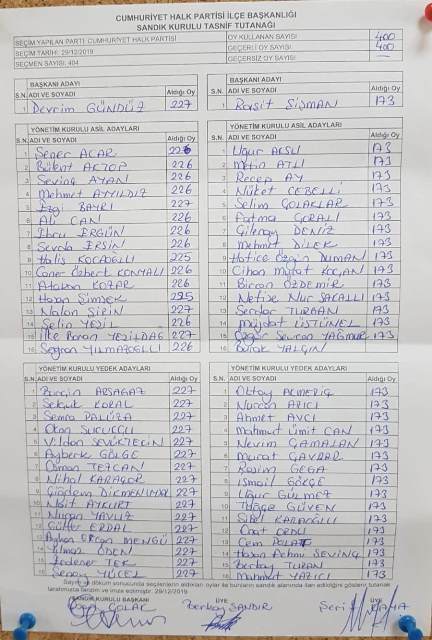 CUMHURİYET HALK PARTİSİ İLÇE BAŞKANLIĞI
SANDIK KURULU TASNİF TUTANAĞI
SEÇİM YAPILAN PARTİ: CUMHURİYET HALK PARTİSİ
OY KULLANAN SAYISI 400
SEÇİM TARİHİ: 29/12/2019
GEÇERLİ OY SAYISI 400
SEÇMEN SAYISI: 404
GEÇERSİZ OY SAYISI —
BAŞKANI ADAYI
S.N. ADI VE SOYADI Aldığı Oy
1 Devrim GÜNDÜZ 227
BAŞKANI ADAYI
S.N. ADI VE SOYADI Aldığı Oy
1 Raşit ŞİŞMAN 173
YÖNETİM KURULU ASİL ADAYLARI
S.N. ADI VE SOYADI Aldığı Oy
1 Şener ACAR 226
2 Bülent AKTOP 226
3 Sevinç AYAN 226
4 Mehmet AYYILDIZ 226
5 Ezgi BAYRI 227
6 Ali CAN 226
7 Ebru ERGÜN 226
8 Sevda ERSİN 226
9 Halis KOCAOĞLU 225
10 Caner Özbert KONYALI 226
11 Atakan KOZAR 226
12 Hasan ŞİMŞEK 225
13 Nalan ŞİRİN 227
14 Selin YEŞİL 227
15 İlke Boran YEŞİLDAĞ 227
16 Seyran YILMAZELLİ 226
YÖNETİM KURULU ASİL ADAYLARI
S.N. ADI VE SOYADI Aldığı Oy
1 Uğur AKSU 173
2 Metin ATLI 173
3 Recep AY 173
4 Nüket CEBELLİ 173
5 Selim ÇOLAKLAR 173
6 Fatma 173
7 Gülenay DENİZ 173
8 Mehmet DİLEK 173
9 Hatice Özgün DUMAN 173
10 Cihan Murat KOÇAN 173
11 Bircan ÖZDEMİR 173
12 Nefise Nur SAKALLI 173
13 Serdar TURBAN 173
14 Müjdat ÜSTÜNEL 173
15 Özgür Sevcan YAĞMUR 173
16 Burak YALÇIN 173
YÖNETİM KURULU YEDEK ADAYLARI
S.N. ADI VE SOYADI Aldığı Oy
1 Burçin ARSAGAZ 227
2 Selçuk KORAL 227
3 Semra PALUZA 227
4 Okan SUCUKÇU 227
5 Vildan SEVÜKTEKİN 227
6 Ayberk GÖLGE 227
7 Osman TEZCAN 227
8 Nihal KARAAĞOR 227
9 Çiğdem 227
10 Nait AYKURT 227
11 Nuran YAVUZ 227
12 Gülfer ERDAL 227
13 Ayhan Ercan MENGÜ 227
14 Yılmaz ÖDEN 227
15 TEK 227
16 Senay YÜCEL 227
YÖNETİM KURULU YEDEK ADAYLARI
S.N. ADI VE SOYADI Aldığı Oy
1 Oktay 173
2 Nurcan AVCI 173
3 Ahmet AVCI 173
4 Mahmut Ümit CAN 173
5 Nevim ÇAMALAN 173
6 Murat ÇAVDAR 173
7 Rasim GEGA 173
8 İsmail GÖKÇE 173
9 Uğur GÜLMEZ 173
10 Tolga GÜVEN 173
11 Sibel KARAOĞLU 173
12 Fuat ORDU 173
13 Cem POLAT 173
14 Hasan Fehmi SEVİNÇ 173
15 Berkay TURAN 173
16 Mahmut YAZICI 173
Sayım ve döküm sonucunda seçilenlerin aldıkları oylar ile bunların sandık alanında ilan edildiğini gösterir tutanak
tarafımızca tanzim ve imza edilmiştir. 29/12/2019
SANDIK KURULU BAŞKANI ÜYE ÜYE
ÇOLAK Berkay SANDIR